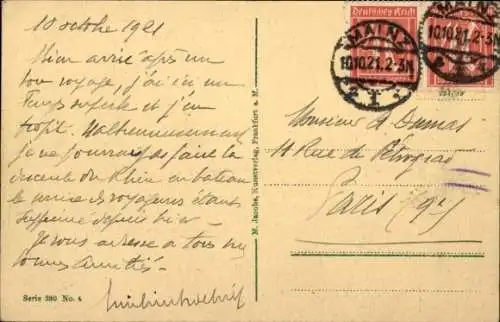 10 octobre 1921
Bien arrivé après un
bon voyage, j'ai ici un
temps superbe et j'en
profit. Malheureusement
je ne pourrais pas faire la
descente du Rhin en bateau
le service de voyageurs étant
supprimé depuis hier –
Je vous adresse à tous mes
bonnes amitiés –
Serie 380 No. 4
M. Jacobs, Kunstverlag, Frankfurt a. M.
Deutsches Reich
MAINZ
10.10.21. 2-3N
MAINZ
10.10.21. 2-3N
Monsieur A Dumas
11 Rue de Pétrograd
Paris